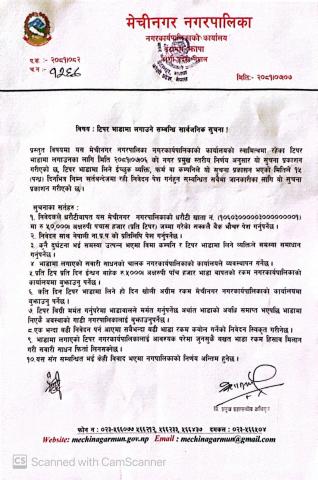 मेचीनगर नगरपालिका
नगरकार्यपालिकाको कार्यालय
प.स.:- २०८१/०८२
च.न.:- १२६६
मितिः- २०८१/०७/०७
विषय : टिपर भाडामा लगाउने सम्बन्धि सार्वजनिक सूचना !
प्रस्तुत विषयमा यस मेचीनगर नगरपालिका नगरकार्यपालिकाको कार्यालयको स्वामित्वमा रहेका टिपर
भाडामा लगाउनका लागि मिति २०८१/०७/०६ को नगर प्रमुख स्तरीय निर्णय अनुसार यो सुचना प्रकाशन
गरीएको छ, टिपर भाडामा लिने ईच्छुक व्यक्ति, फर्म वा कम्पनिले यो सुचना प्रकाशन भएको मितिले १५
(पन्ध्र) दिनभित्र निम्न सर्तबन्देजमा रही निवेदन पेश गर्नहुन सम्बन्धित सबैमा जानकारीका लागि यो सुचना
प्रकाशन गरीएको छ।
सुचनाका सर्तहरु :
१. निवेदकले धरौटीवापत यस मेचीनगर नगरपालिकाको धरौटी खाता नं.
मा रु ५०,०००। अक्षरुपी पचास हजार (प्रति टिपर) जम्मा गरेको सक्कलै बैंक भौचर पेश गर्नुपर्नेछ।
२. निवेदन साथ नेपाली ना.प्र.प को प्रतिलिपि पेश गर्नुपर्नेछ।
३. कुनै दुर्घटना भई समस्या उत्पन्न भएमा विमा कम्पनि र टिपर भाडामा लिने व्यक्तिले समस्या समाधान
गर्नुपर्नेछ।
४ भाडामा लगाएको सवारी साधनको चालक नगरकार्यपालिकाको कार्यालयले व्यवस्थापन गर्नेछ।
५ प्रति टिप प्रति दिन ईन्धन बाहेक रु ५०००। अक्षरुपी पाँच हजार भाडा वापतको रकम नगरकार्यपालिकाको कार्यालयमा
बुझाउनु पर्नेछ।
६ कति दिन टिपर भाडामा लिने हो दिन खोली अग्रीम रकम मेचीनगर नगरकार्यपालिकाको कार्यालयमा
बुझाउनु पर्नेछ।
७ टिपर विग्री मर्मत गर्नुपरेमा भाडावालले मर्मत गर्नुपर्नेछ अर्थात भाडाको अवधि समाप्त भएपछि भाडामा
लिएकै अवस्थाको गाडी नगरपालिकालाई बुझाउनुपर्नेछ।
८ एक भन्दा बढी निवेदन पर्न आएमा सबैभन्दा बढी भाडा रकम कबोल गर्नेको निवेदन स्विकृत गरीनेछ।
९. भाडामा लगाएको टिपर नगरकार्यपालिकालाई आवश्यक परेमा जुनसुकै वखत भाडा रकम हिसाव मिलान
गरी सवारी साधन फिर्ता लिनसक्नेछ।
१०.यस संग सम्बन्धित भई केही विवाद भएमा नगरपालिकाको निर्णय अन्तिम हुनेछ।
नि. प्रमुख प्रशासकीय अधिकृत
Website: mechinagarmun.gov.np Email : mechinagarmun@gmail.com
CS Scanned with CamScanner